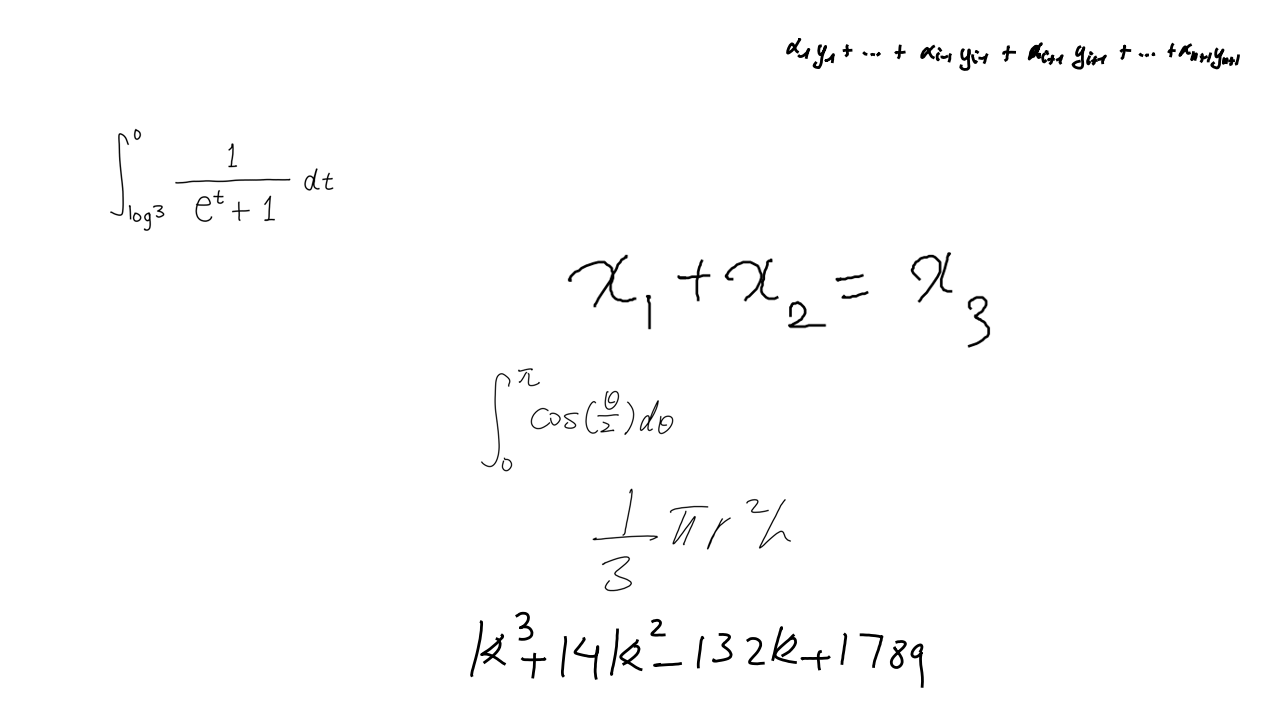 α₁y₁ + ... + αᵢ₋₁yᵢ₋₁ + αᵢ₊₁yᵢ₊₁ + ... + αₙ₊₁yₙ₊₁
\int_{\log 3}^{0} \frac{1}{e^t + 1} dt
x₁ + x₂ = x₃
\int_{0}^{\pi} \cos(\frac{\theta}{2}) d\theta
\frac{1}{3} πr²h
k³ + 14k² - 132k + 1789